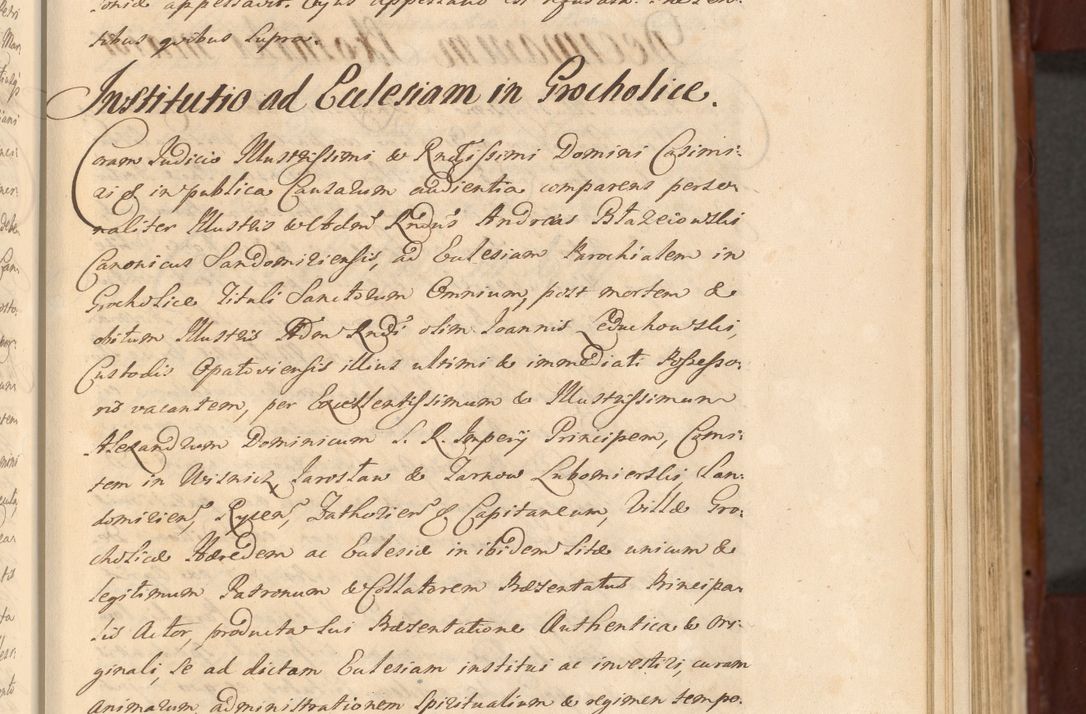 tibus quibus supra.
Institutio ad Ecclesiam in Grocholice.
Coram Judicio Illustrissimi & Rndissimi Domini Casimi:
ri & in publica Causarum audientia comparens perso
naliter Illustris & Adm Rndus Andreas Błazeiowski
Canonicus Sandomiriensis, ad Ecclesiam Parochialem in
Grocholice Tituli Sanctorum Omnium, post mortem &
obitum Illustris Adm Rndi olim Joannis Leduchowski,
Custodis Opatoviensis illius ultimi & immediati Possesso:
ris vacantem, per Excellentissimum & Illustrissimum
Alexandrum Dominicum S. R. Imperij Principem, Comi:
tem in Wisnicz Jarosław & Tarnow Lubomierski, San:
domirien, Ryken, Zatholien & Capitaneum, Villæ Gro:
cholice Hæredem ac Ecclesiæ in ibidem sitæ unicum &
legitimum Patronum & Collatorem Præsentatus Principa:
lis Actor, producta sui Præsentatione Authentica & Ori:
ginali, se ad dictam Ecclesiam institui ac investiri, curam
animarum administrationem spiritualium & regimen tempo: